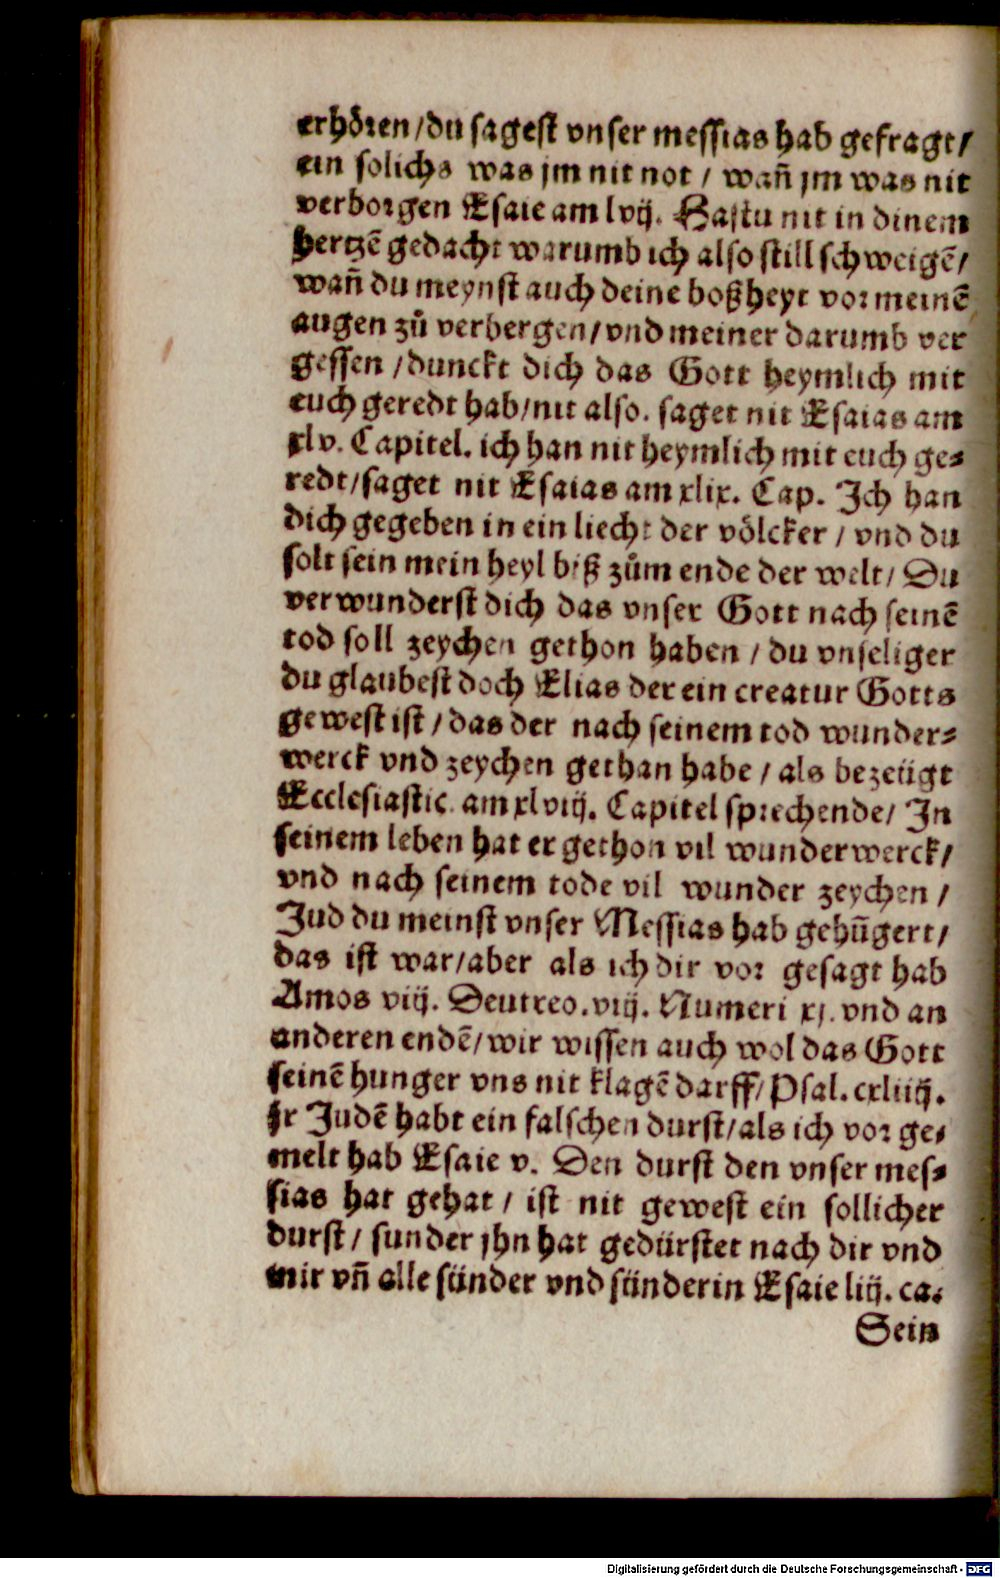 erhören/du sagest vnser messias hab gefragt/
ein solichs was jm nit not / wañ jm was nit
verborgen Esaie am lvij. Hastu nit in dinem
hertzẽ gedacht warumb ich also still schweigẽ/
wañ du meynst auch deine boßheyt vor meinẽ
augen zů verbergen/vnd meiner darumb ver
gessen /dunckt dich das Gott heymlich mit
euch geredt hab/nit also. saget nit Esaias am
xlv. Capitel. ich han nit heymlich mit euch ge-
redt/saget nit Esaias am xlix. Cap. Ich han
dich gegeben in ein liecht der völcker / vnd du
solt sein mein heyl biß zům ende der welt/ Du
verwunderst dich das vnser Gott nach seinẽ
tod soll zeychen gethon haben / du vnseliger
du glaubest doch Elias der ein creatur Gotts
gewest ist / das der nach seinem tod wunder-
werck vnd zeychen gethan habe / als bezeügt
Ecclesiastic. am xlviij. Capitel sprechende/ In
seinem leben hat er gethon vil wunderwerck/
vnd nach seinem tode vil wunder zeychen /
Jud du meinst vnser Messias hab gehũgert/
das ist war/aber als ich dir vor gesagt hab
Amos viij. Deutreo.viij. Numeri xj. vnd an
anderen endẽ/wir wissen auch wol das Gott
seinẽ hunger vns nit klagẽ darff/Psal. cxliiij.
jr Judẽ habt ein falschen durst/als ich vor ge-
melt hab Esaie v. Den durst den vnser mes-
sias hat gehat / ist nit gewest ein sollicher
durst/ sunder jhn hat gedürstet nach dir vnd
mir vñ alle sünder vnd sünderin Esaie liij. ca.
Sein
Digitalisierung gefördert durch die Deutsche Forschungsgemeinschaft - DFG